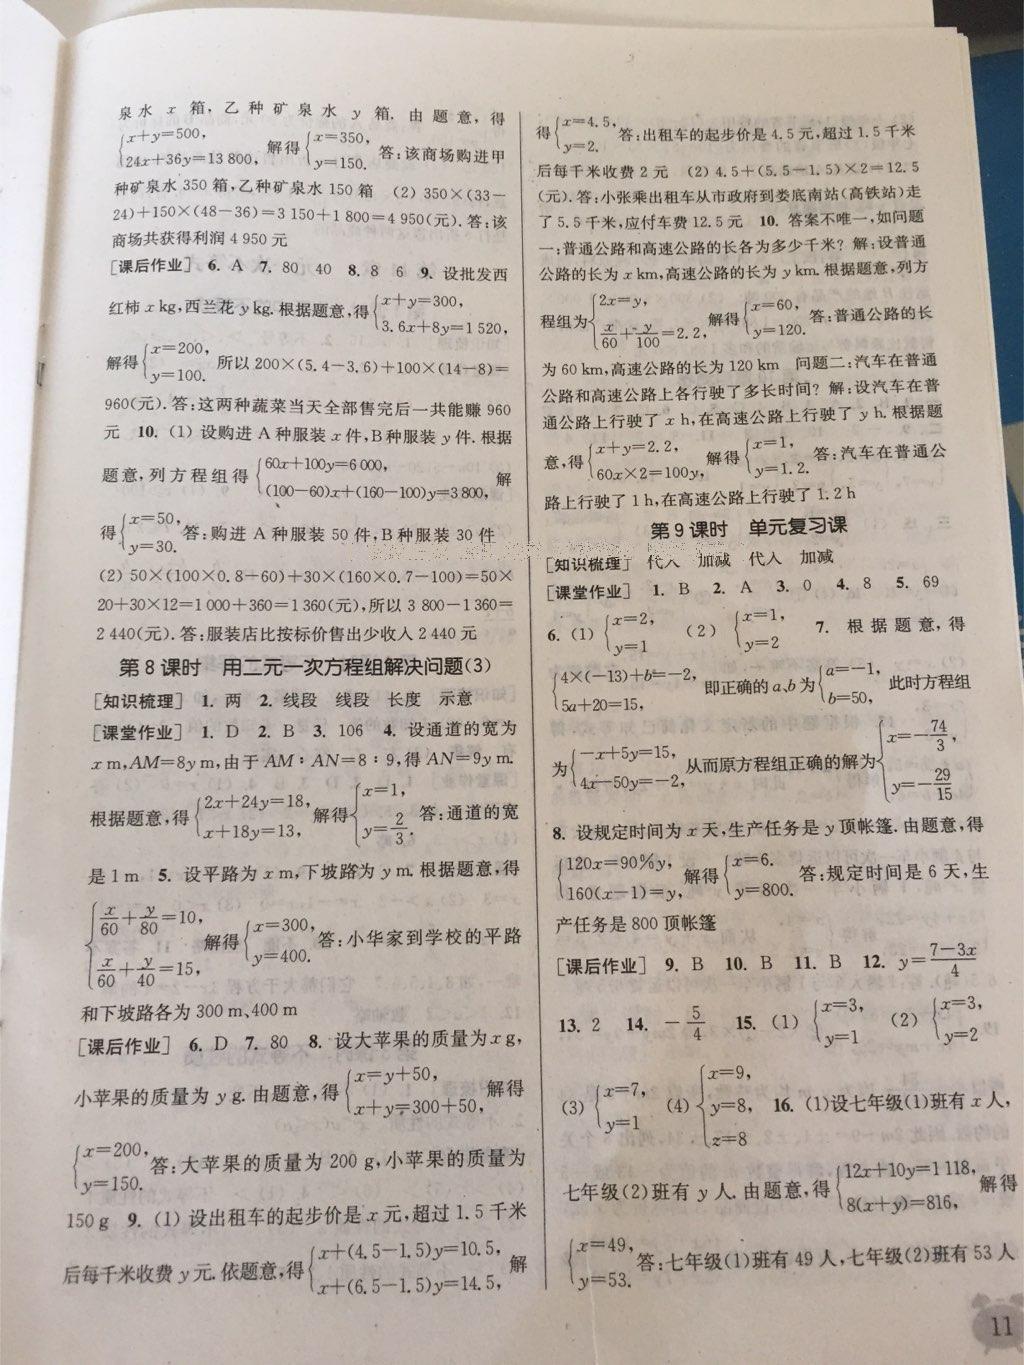 泉水 x 箱,乙种矿泉水 y 箱. 由题意,得
{x+y=500, 24x+36y=13 800, 解得{x=350, y=150. 答:该商场购进甲
种矿泉水 350 箱,乙种矿泉水 150 箱 (2) 350×(33-
24)+150×(48-36)=3 150+1 800=4 950(元). 答:该
商场共获得利润 4 950 元
[课后作业] 6. A 7. 80 40 8. 8 6 9. 设批发西
红柿 x kg,西兰花 y kg. 根据题意,得{x+y=300, 3.6x+8y=1 520,
解得{x=200, y=100. 所以 200×(5.4-3.6)+100×(14-8)=
960(元). 答:这两种蔬菜当天全部售完后一共能赚 960
元 10. (1) 设购进 A 种服装 x 件,B 种服装 y 件. 根据
题意,列方程组得{60x+100y=6 000, (100-60)x+(160-100)y=3 800, 解
得{x=50, y=30. 答:购进 A 种服装 50 件,B 种服装 30 件
(2) 50×(100×0.8-60)+30×(160×0.7-100)=50×
20+30×12=1 000+360=1 360(元),所以 3 800-1 360=
2 440(元). 答:服装店比按标价售出少收入 2 440 元
第 8 课时 用二元一次方程组解决问题(3)
[知识梳理] 1. 两 2. 线段 线段 长度 示意
[课堂作业] 1. D 2. B 3. 106 4. 设通道的宽为
x m,AM=8y m,由于 AM∶AN=8∶9,得 AN=9y m.
根据题意,得{2x+24y=18, x+18y=13, 解得{x=1, y=2/3. 答:通道的宽
是 1 m 5. 设平路为 x m,下坡路为 y m. 根据题意,得
{x/60+y/80=10, x/60+y/40=15, 解得{x=300, y=400. 答:小华家到学校的平路
和下坡路各为 300 m、400 m
[课后作业] 6. D 7. 80 8. 设大苹果的质量为 x g,
小苹果的质量为 y g. 由题意,得{x=y+50, x+y=300+50, 解得
{x=200, y=150. 答:大苹果的质量为 200 g,小苹果的质量为
150 g 9. (1) 设出租车的起步价是 x 元,超过 1.5 千米
后每千米收费 y 元. 依题意,得{x+(4.5-1.5)y=10.5, x+(6.5-1.5)y=14.5, 解
得{x=4.5, y=2. 答:出租车的起步价是 4.5 元,超过 1.5 千米
后每千米收费 2 元 (2) 4.5+(5.5-1.5)×2=12.5
(元). 答:小张乘出租车从市政府到娄底南站(高铁站)走
了 5.5 千米,应付车费 12.5 元 10. 答案不唯一,如问题
一:普通公路和高速公路的长各为多少千米? 解:设普通
公路的长为 x km,高速公路的长为 y km. 根据题意,列方
程组为{2x=y, x/60+y/100=2.2, 解得{x=60, y=120. 答:普通公路的长
为 60 km,高速公路的长为 120 km 问题二:汽车在普通
公路和高速公路上各行驶了多长时间? 解:设汽车在普
通公路上行驶了 x h,在高速公路上行驶了 y h. 根据题
意,得{x+y=2.2, 60x×2=100y, 解得{x=1, y=1.2. 答:汽车在普通公
路上行驶了 1 h,在高速公路上行驶了 1.2 h
第 9 课时 单元复习课
[知识梳理] 代入 加减 代入 加减
[课堂作业] 1. B 2. A 3. 0 4. 8 5. 69
6. (1) {x=2, y=1 (2) {x=1, y=2 7. 根据题意,得
{4×(-13)+b=-2, 5a+20=15, 即正确的 a、b 为{a=-1, b=50, 此时方程组
为{-x+5y=15, 4x-50y=-2, 从而原方程组正确的解为{x=-74/3, y=-29/15
8. 设规定时间为 x 天,生产任务是 y 顶帐篷. 由题意,得
{120x=90%y, 160(x-1)=y, 解得{x=6. y=800. 答:规定时间是 6 天,生
产任务是 800 顶帐篷
[课后作业] 9. B 10. B 11. B 12. y=(7-3x)/4
13. 2 14. -5/4 15. (1) {x=3, y=1 (2) {x=3, y=2
(3) {x=7, y=1 (4) {x=9, y=8, z=8 16. (1)设七年级(1)班有 x 人,
七年级(2)班有 y 人. 由题意,得{12x+10y=1 118, 8(x+y)=816, 解得
{x=49, y=53. 答:七年级(1)班有 49 人,七年级(2)班有 53 人
11